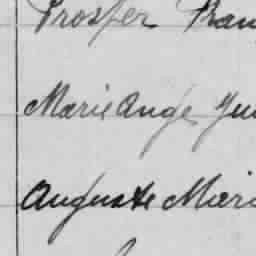 Prosper Fran
Marie Ange
Auguste Marie